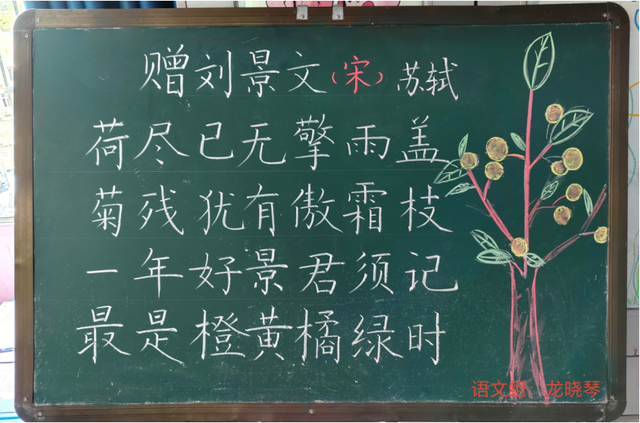 赠刘景文（宋）苏轼
荷尽已无擎雨盖
菊残犹有傲霜枝
一年好景君须记
最是橙黄橘绿时
语文组 龙晓琴